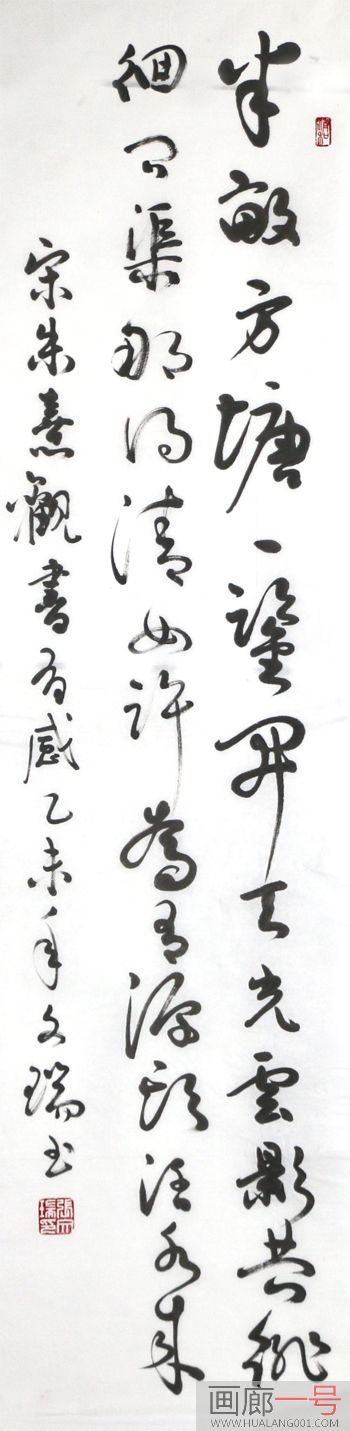 半畝方塘一鑒開天光雲影共徘
徊问渠那得清如許為有源头活水来
宋朱熹觀書有感乙未年文瑞书
張文瑞印
画廊一号
WWW.HUALANG001.COM